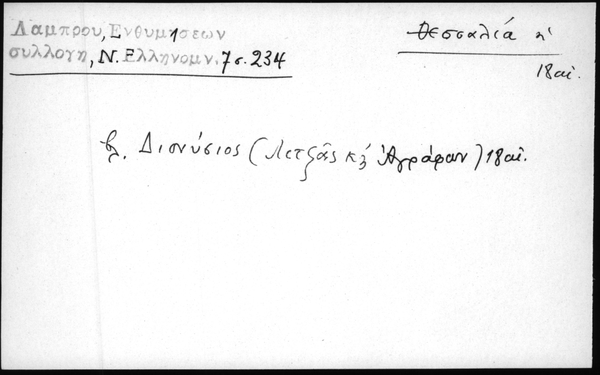 Λαμπρου, Ενθυμησεων
συλλογη, Ν. Ελληνομν. 7 σ. 234
Θεσσαλιά
18 αἰ.
Διονύσιος (Λετζᾶς κ̀ Ἀγράφων) 18 αἰ.